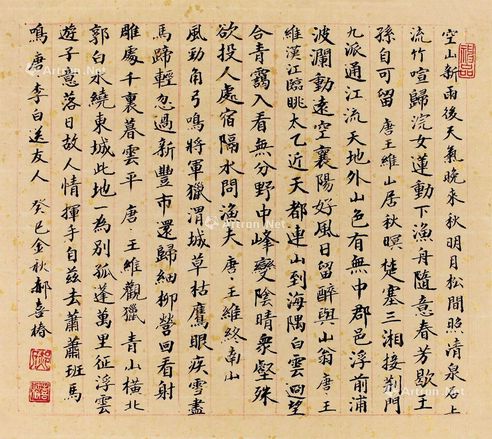 空山新雨後天氣晚来秋明月松間照清泉石上
流竹喧歸浣女蓮動下漁舟隨意春芳歇王
孫自可留 唐·王維山居秋暝 楚塞三湘接荆門
九派通江流天地外山色有無中郡邑浮前浦
波瀾動遠空襄陽好風日留醉與山翁 唐·王
維漢江臨眺 太乙近天都連山到海隅白雲迴望
合青靄入看無分野中峰變陰晴衆壑殊
欲投人處宿隔水問漁夫 唐·王維終南山
風勁角弓鳴將軍獵渭城草枯鷹眼疾雪盡
馬蹄輕忽過新豐市還歸細柳營回看射
雕處千裏暮雲平 唐·王維觀獵 青山橫北
郭白水繞東城此地一為別孤蓬萬里征浮雲
遊子意落日故人情揮手自兹去蕭蕭班馬
鳴 唐·李白送友人 癸巳金秋郝喜椿
Artron.Net